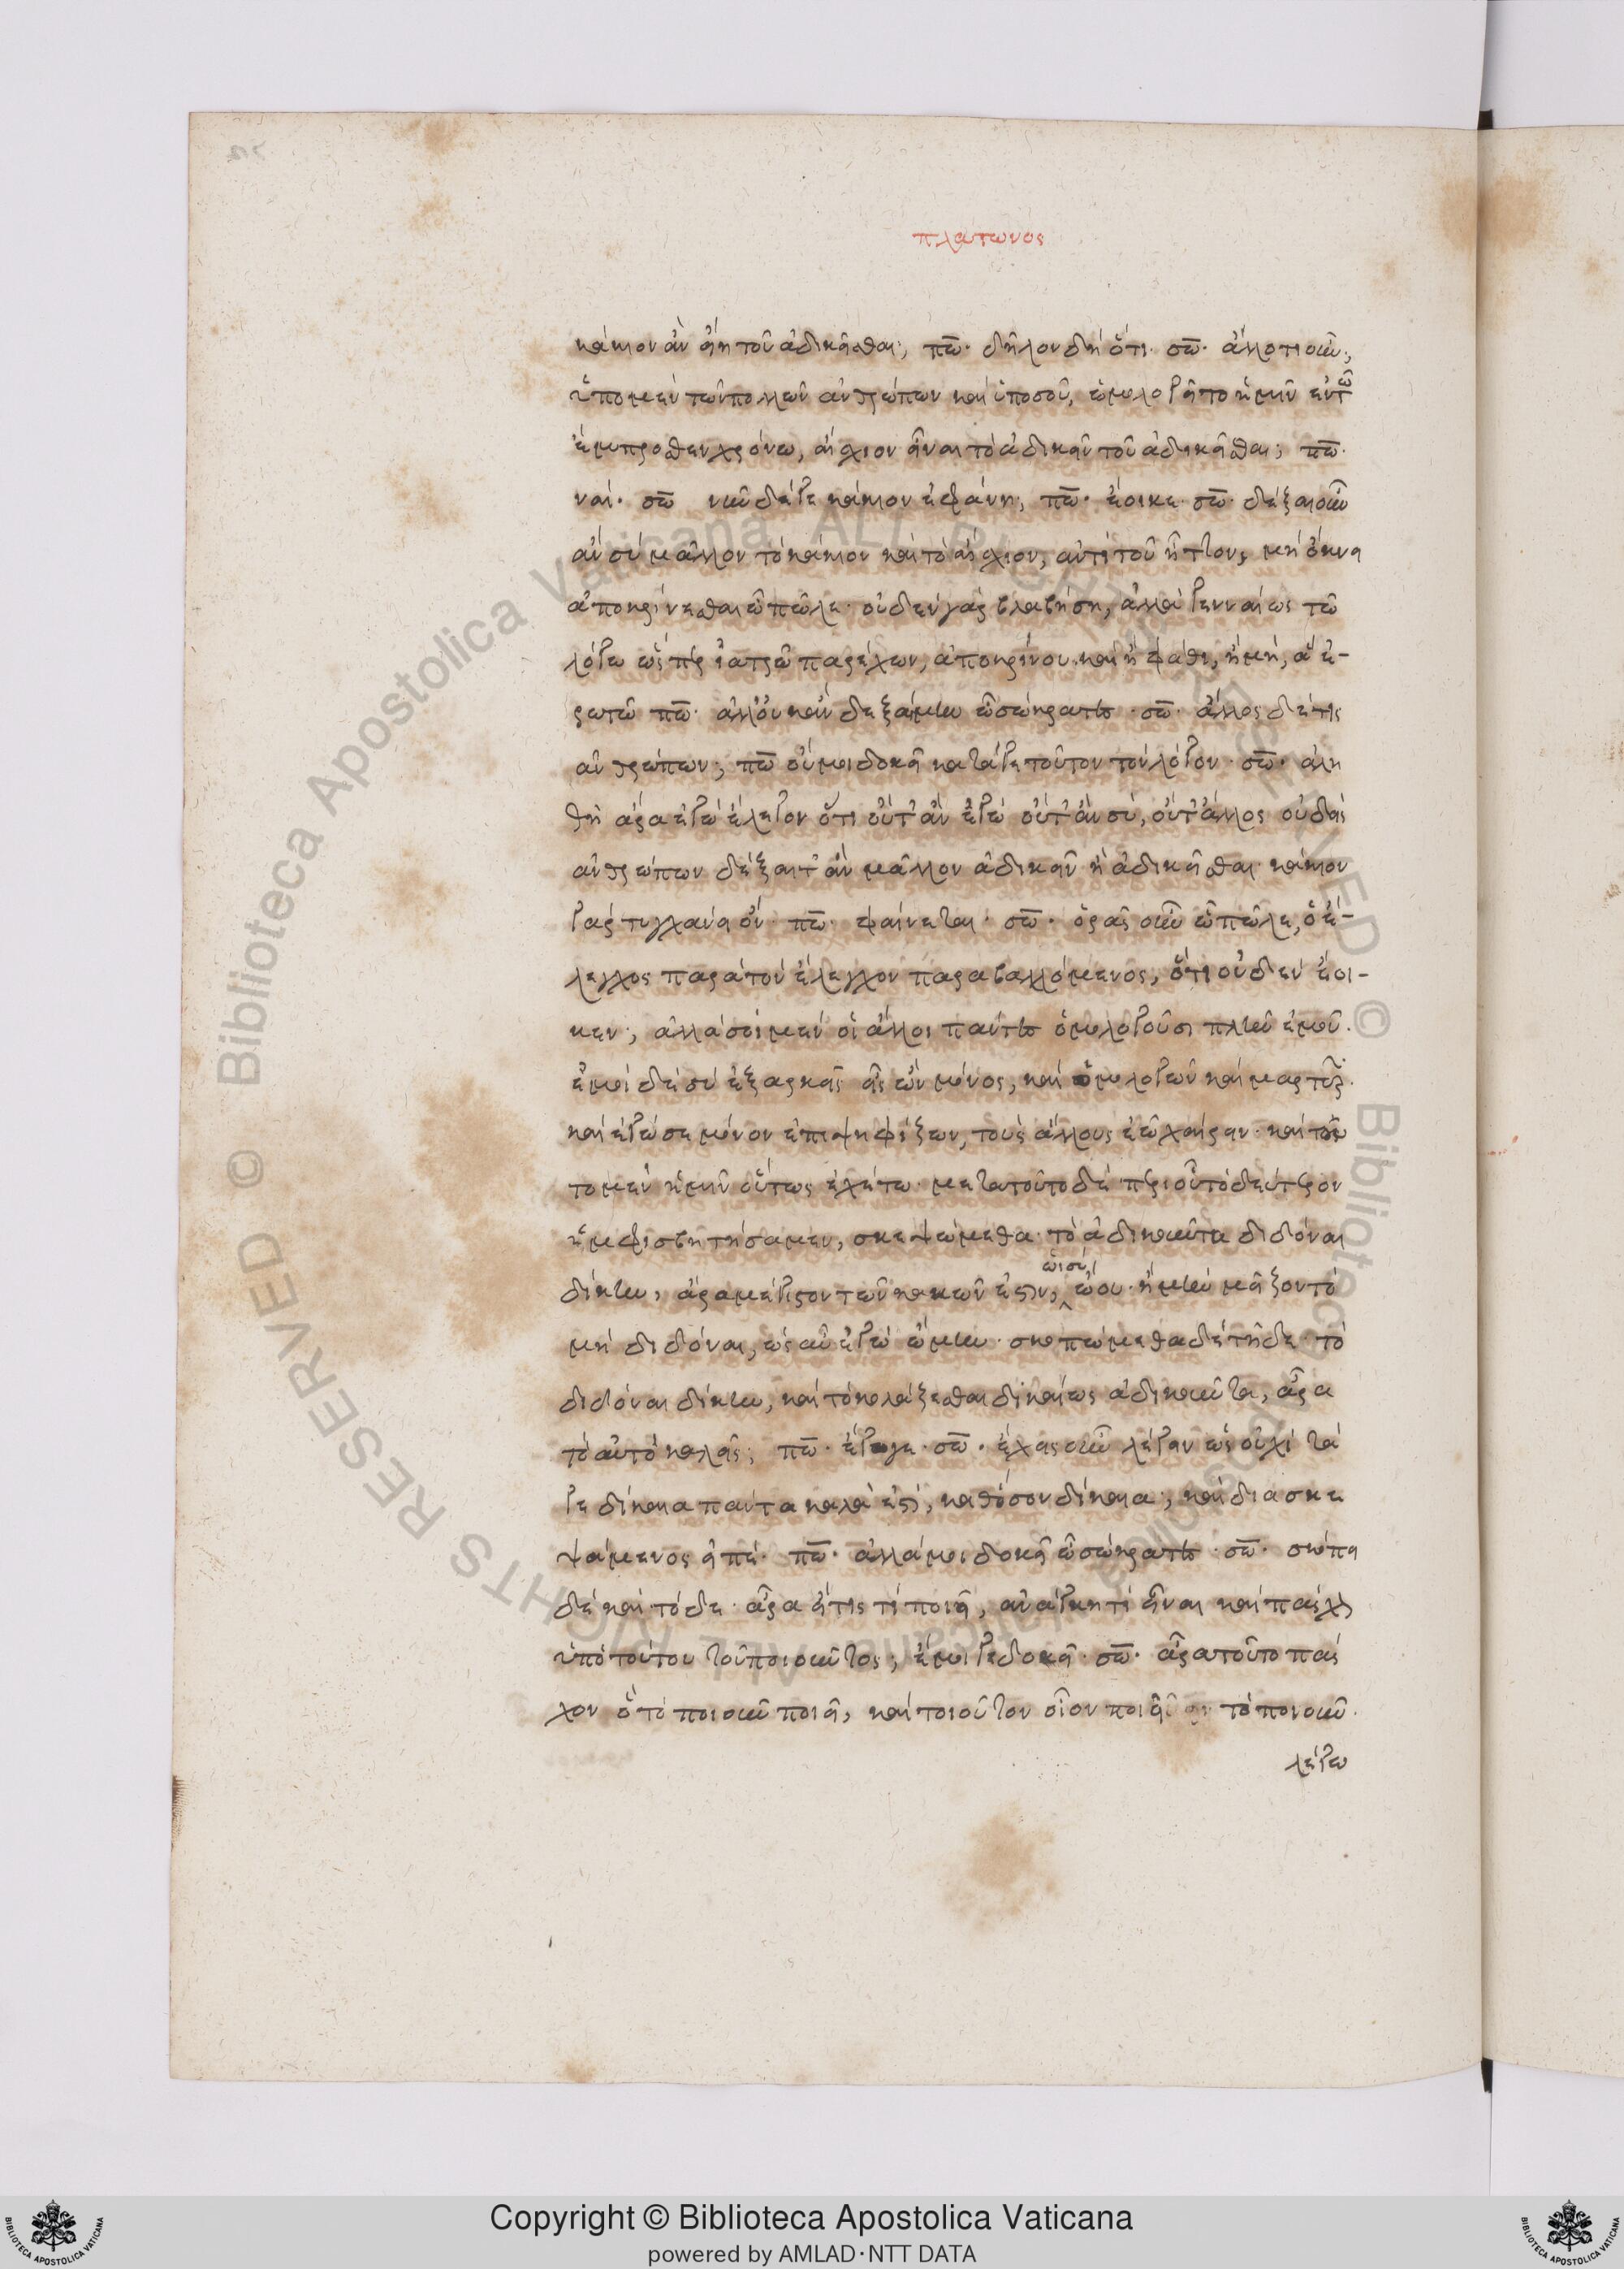 πλάτωνος
κάκιον ἂν εἴη τοῦ ἀδικεῖσθαι; πῶ. δῆλον δὴ ὅτι. σῶ. ἄλλο τι οὖν;
ὑπὸ μὲν τῶν πολλῶν ἀνθρώπων καὶ ὑπὸ σοῦ, ὡμολογεῖτο ἡμῖν ἐν τῶ
ἔμπροσθεν χρόνω, αἴσχιον εἶναι τὸ ἀδικεῖν τοῦ ἀδικεῖσθαι; πῶ.
ναί. σῶ νῦν δέ γε κάκιον ἐφάνη; πῶ. ἔοικε. σῶ. δέξαι οὖν
ἂν σὺ μᾶλλον τὸ κάκιον καὶ τὸ αἴσχιον, ἀντὶ τοῦ ἧττον; μὴ ὄκνει
ἀποκρίνεσθαι ὦ πῶλε. οὐδὲν γὰρ βλαβήση, ἀλλὰ γενναίως τῶ
λόγω ὥσπερ ἰατρῶ παρέχων, ἀποκρίνου. καὶ ἢ φάθι, ἢ μὴ, ἃ ἐ-
ρωτῶ πῶ. ἀλλ' οὐκ ἂν δεξαίμην ὦ σώκρατες. σῶ. ἄλλος δέ τις
ἀνθρώπων; πῶ οὔ μοι δοκεῖ κατά γε τοῦτον τὸν λόγον. σῶ. ἀλη
θῆ ἄρα ἐγὼ ἔλεγον ὅτι οὔτ' ἂν ἐγὼ οὔτ' ἂν σὺ, οὔτ' ἄλλος οὐδεὶς
ἀνθρώπων δέξαιτ' ἂν μᾶλλον ἀδικεῖν ἢ ἀδικεῖσθαι. κάκιον
γὰρ τυγχάνει ὄν. πῶ. φαίνεται. σῶ. ὁρᾶς οὖν ὦ πῶλε, ὁ ἔ-
λεγχος παρὰ τὸν ἔλεγχον παραβαλλόμενος, ὅτι οὐδὲν ἔοι-
κεν; ἀλλὰ σοὶ μὲν οἱ ἄλλοι πάντες ὁμολογοῦσι πλὴν ἐμοῦ.
ἐμοὶ δὲ σὺ ἐξαρκεῖς εἷς ὢν μόνος, καὶ ὁμολογῶν καὶ μαρτυρῶν.
καὶ ἐγὼ σὲ μόνον ἐπιψηφίζων, τοὺς ἄλλους ἐῶ χαίρειν. καὶ τοῦ
το μὲν ἡμῖν οὕτως ἐχέτω. μετὰ τοῦτο δὲ περὶ οὗ τὸ δεύτερον
ἠμφισβητήσαμεν, σκεψώμεθα. τὸ ἀδικοῦντα διδόναι
δίκην, ἆρα μέγιστον τῶν κακῶν ἐστιν, ὡς σὺ ὤου. ἢ μὴν μεῖζον τὸ
μὴ διδόναι, ὡς αὖ ἐγὼ ὤμην. σκοπώμεθα δὲ τῆδε. τὸ
διδόναι δίκην, καὶ τὸ κολάζεσθαι δικαίως ἀδικοῦντα, ἆρα
τὸ αὐτὸ καλεῖς; πῶ. ἔγωγε. σῶ. ἔχεις οὖν λέγειν ὡς οὐχὶ τά
γε δίκαια πάντα καλὰ ἐστὶ, καθόσον δίκαια; καὶ διασκε
ψάμενος εἰπέ. πῶ. ἀλλά μοι δοκεῖ ὦ σώκρατες. σῶ. σκόπει
δὲ καὶ τόδε. ἆρα εἴ τις τί ποιεῖ, ἀνάγκη τὶ εἶναι καὶ πάσχον
ὑπὸ τούτου τοῦ ποιοῦντος; ἔμοιγε δοκεῖ. σῶ. ἆρα τοῦτο πάσ
χον ὃ τὸ ποιοῦν ποιεῖ, καὶ τοιοῦτον οἷον ποιεῖ τὸ ποιοῦν.
λέγω